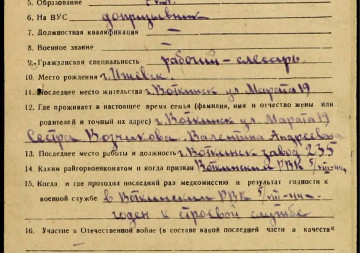 5. Образование
6. На ВУС допризывник
7. Должностная квалификация —
8. Военное звание —
9. Гражданская специальность рабочий-слесарь
10. Место рождения г. Ижевск
11. Последнее место жительства г. Воткинск ул. Марата 19
12. Где проживает в настоящее время семья (фамилия, имя и отчество жены или
родителей и точный их адрес) г. Воткинск ул. Марата 19
Сестра Возчикова Валентина Андреевна
13. Последнее место работы и должность г. Воткинск завод 235
14. Каким райгорвоенкоматом и когда призван Воткинским РВК 5/VIII-44
15. Когда и где проходил последний раз медкомиссию и результат годности к
военной службе в Воткинском РВК 5/VIII-44
годен к строевой службе
16. Участие в Отечественной войне (в составе какой последней части в качестве